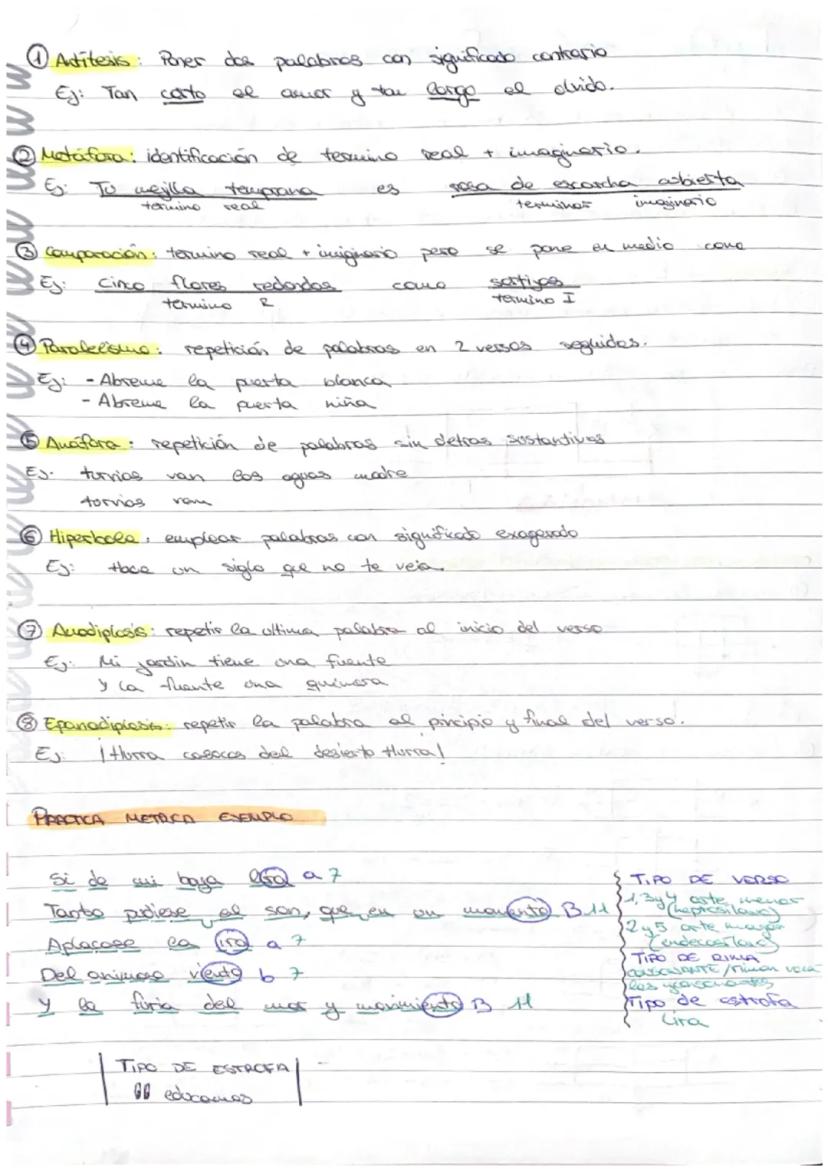 ① Antítesis: Poner dos palabras con significado contrario
Ej: Tan corto el amor y tan largo el olvido.
② Metáfora: identificación de termino real + imaginario.
Ej: Tu mejilla temprana es rosa de escarcha abierta
termino real terminos imaginario
③ Comparación: termino real + imiginario pero se pone en medio como
Ej: Cinco flores redondas como sortijas
termino R termino I
④ Paralelismo: repetición de palabras en 2 versos seguidos.
Ej: - Abreme la puerta blanca
- Abreme la puerta niña
⑤ Anáfora: repetición de palabras sin detras sustantivos
Ej. turvias van las aguas madre
turvias van
⑥ Hiperbole, emplear palabras con significado exagerado
Ej: Hace un siglo que no te veia.
⑦ Anadiplosis: repetir la ultima palabra al inicio del verso
Ej: Mi jardin tiene una fuente
y la fuente una quimera
⑧ Epanadiplosis: repetir la palabra al principio y final del verso.
Ej: ¡Hurra cosacos del desierto Hurra!
PRACTICA METRICA EJEMPLO
Si de mi baja lira a 7
Tanto pudiese el son, que en un momento B 11
Aplacase la ira a 7
Del animoso viento b 7
Y la furia del mar y movimiento B 11
TIPO DE VERSO
1,3 y 4 arte menor
(heptasilabo)
2 y 5 arte mayor
(endecasilabo)
TIPO DE RIMA
CONSONANTE / riman voca
las y consonantes
Tipo de estrofa
Lira
TIPO DE ESTROFA
educamos